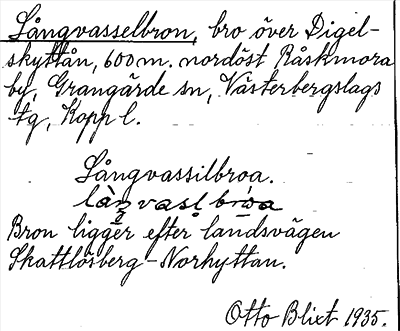 Långvasselbron, bro över Digel-
skyttån, 600 m. nordöst Råskmora
by, Grangärde sn, Västerbergslags
tg, Kopp l.
Långvassilbroa.
Bron ligger efter landsvägen
Skattlösberg-Norhyttan.
Otto Blixt 1935.